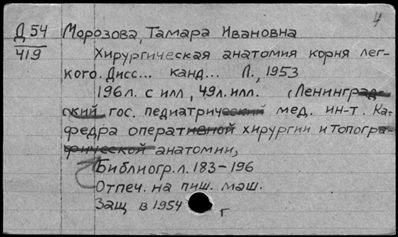 4
Д 54 Морозова, Тамара Ивановна
419 Хирургическая анатомия корня лег-
кого. Дисс... канд... Л., 1953
196л. с илл, 49л. илл. (Ленинград-
ский гос. педиатрический мед. ин-т. Ка-
федра оперативной хирургии и топогра-
фической анатомии,
Библиогр. л. 183-196
Отпеч. на пиш. маш.
Защ в 1954 г